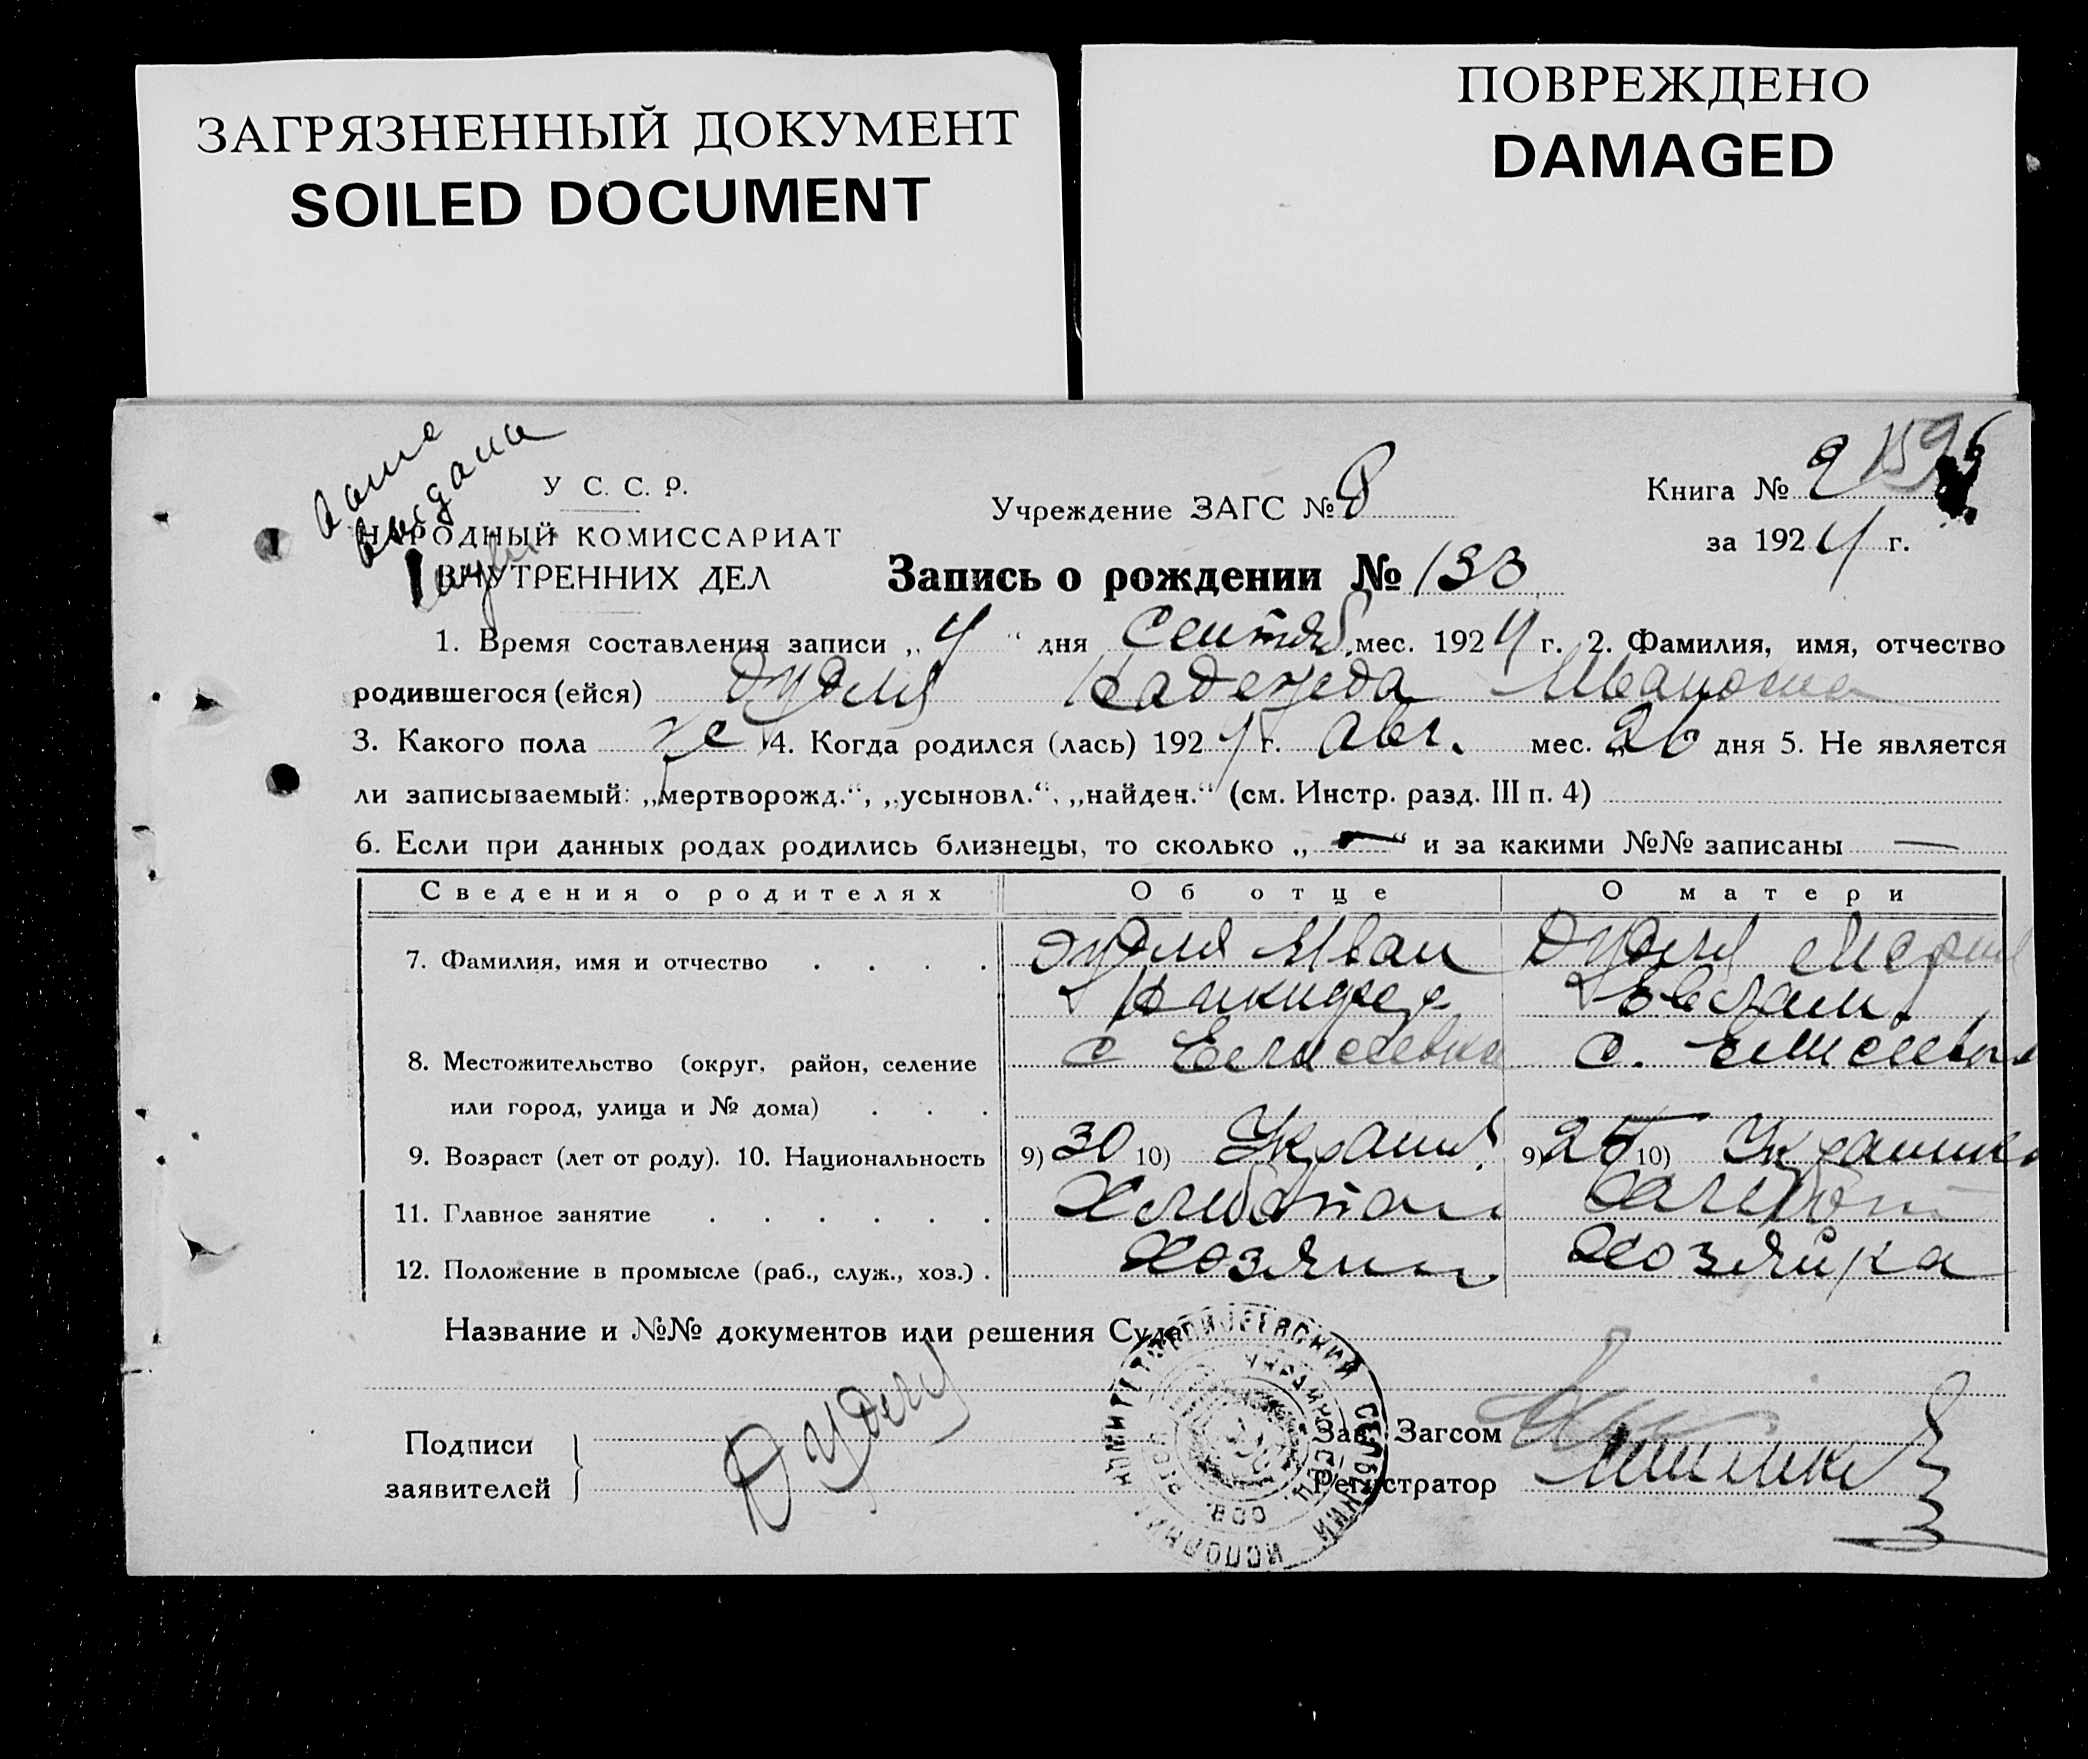 ЗАГРЯЗНЕННЫЙ ДОКУМЕНТ
SOILED DOCUMENT
ПОВРЕЖДЕНО
DAMAGED
У С. С. Р.
НАРОДНЫЙ КОМИССАРИАТ
ВНУТРЕННИХ ДЕЛ
Учреждение ЗАГС № 8
Книга № 2 159
за 1924 г.
Запись о рождении № 133
1. Время составления записи „4“ дня Сентяб. мес. 1924 г. 2. Фамилия, имя, отчество
родившегося (ейся) Дудля Надежда Ивановна
3. Какого пола же 4. Когда родился (лась) 1924 г. Авг. мес. „26 дня 5. Не является
ли записываемый: „мертворожд.“, „усыновл.“, „найден.“ (см. Инстр. разд. III п. 4)
6. Если при данных родах родились близнецы, то сколько „—“ и за какими №№ записаны —
Сведения о родителях Об отце О матери
7. Фамилия, имя и отчество . . . . Дудля Иван Дудля Мария
Никифор
8. Местожительство (округ, район, селение с Елисеевка с. Елисеевка
или город, улица и № дома) . . .
9. Возраст (лет от роду). 10. Национальность 9) 30 10) Украин. 9) 25 10) Украинка
11. Главное занятие . . . . . . Хлебопаш Хлебоп
12. Положение в промысле (раб., служ., хоз.) . Хозяин Хозяйка
Название и №№ документов или решения Суда
Подписи
заявителей
Дудля
Зав. Загсом
Регистратор